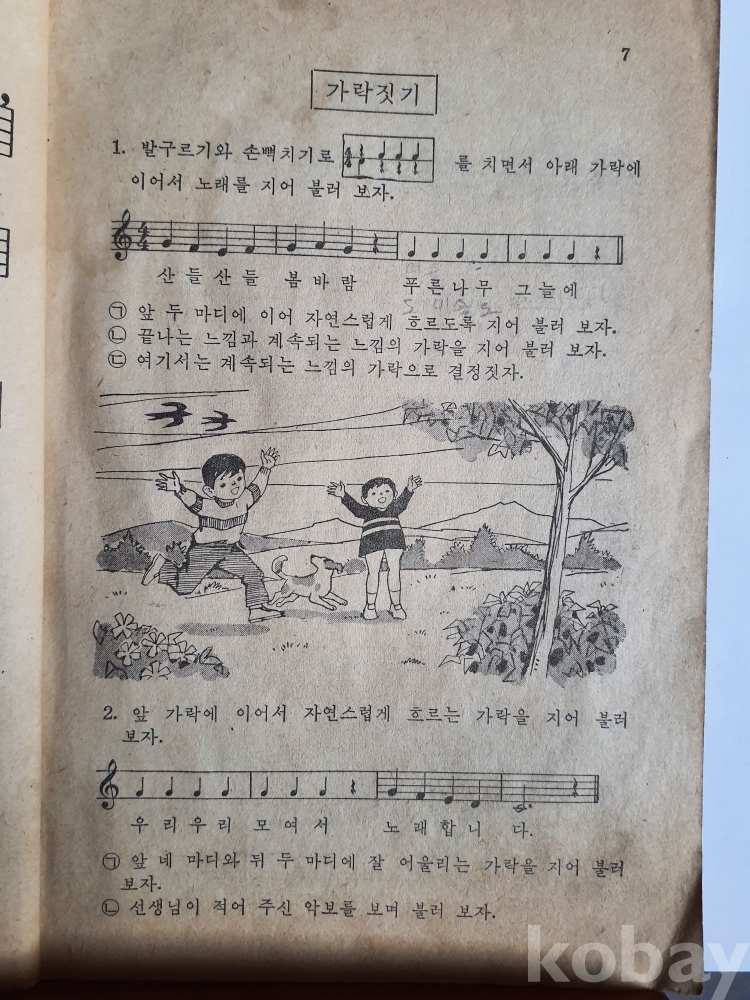 7
가락짓기
1. 발구르기와 손뼉치기로 를 치면서 아래 가락에
이어서 노래를 지어 불러 보자.
산들산들 봄바람 푸른나무 그늘에
㉠ 앞 두 마디에 이어 자연스럽게 흐르도록 지어 불러 보자.
㉡ 끝나는 느낌과 계속되는 느낌의 가락을 지어 불러 보자.
㉢ 여기서는 계속되는 느낌의 가락으로 결정짓자.
2. 앞 가락에 이어서 자연스럽게 흐르는 가락을 지어 불러
보자.
우리우리 모여서 노래합니다.
㉠ 앞 네 마디와 뒤 두 마디에 잘 어울리는 가락을 지어 불러
보자.
㉡ 선생님이 적어 주신 악보를 보며 불러 보자.
kobay